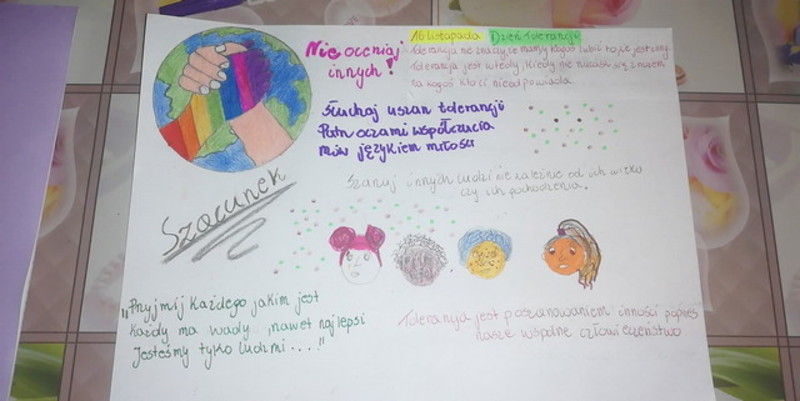 16 listopada Dzień Tolerancji
Nie oceniaj
innych!
Tolerancja nie znaczy, że mamy kogoś lubić to, kie jest inny.
Tolerancja jest wtedy, kiedy nie rzucasz się z nożem
na kogoś kto ci nie odpowiada.
Słuchaj uszami tolerancji
Patrz oczami współczucia
mów językiem miłości
Szanuj innych ludzi nie zależnie od ich wieku
czy ich pochodzenia.
Szacunek
"Przyjmij każdego jakim jest
Każdy ma wady, nawet najlepsi
Jesteśmy tylko ludźmi..."
Tolerancja jest poszanowaniem inności poprzez
nasze wspólne człowieczeństwo